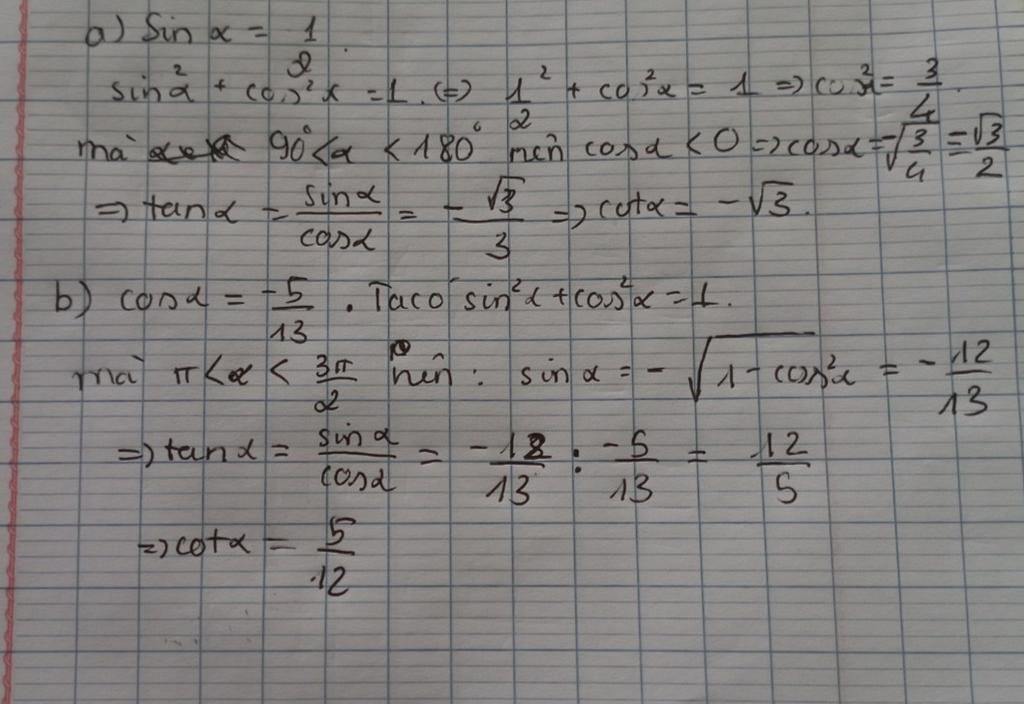 a) Sin α = 1/2.
sin²α + cos²x = 1. (=) 1²/2 + cos²α = 1 => cos²α = 3/4
mà 90° < α < 180° nên cosα < 0 => cosα = -√(3/4) = √3/2
=> tanα = sinα/cosα = -√3/3 => cotα = -√3.
b) cosα = -5/13. Ta có sin²α + cos²α = 1.
mà π < α < 3π/2 nên: sinα = -√(1 - cos²α) = -12/13
=> tanα = sinα/cosα = -12/13 : -5/13 = 12/5
=> cotα = 5/12